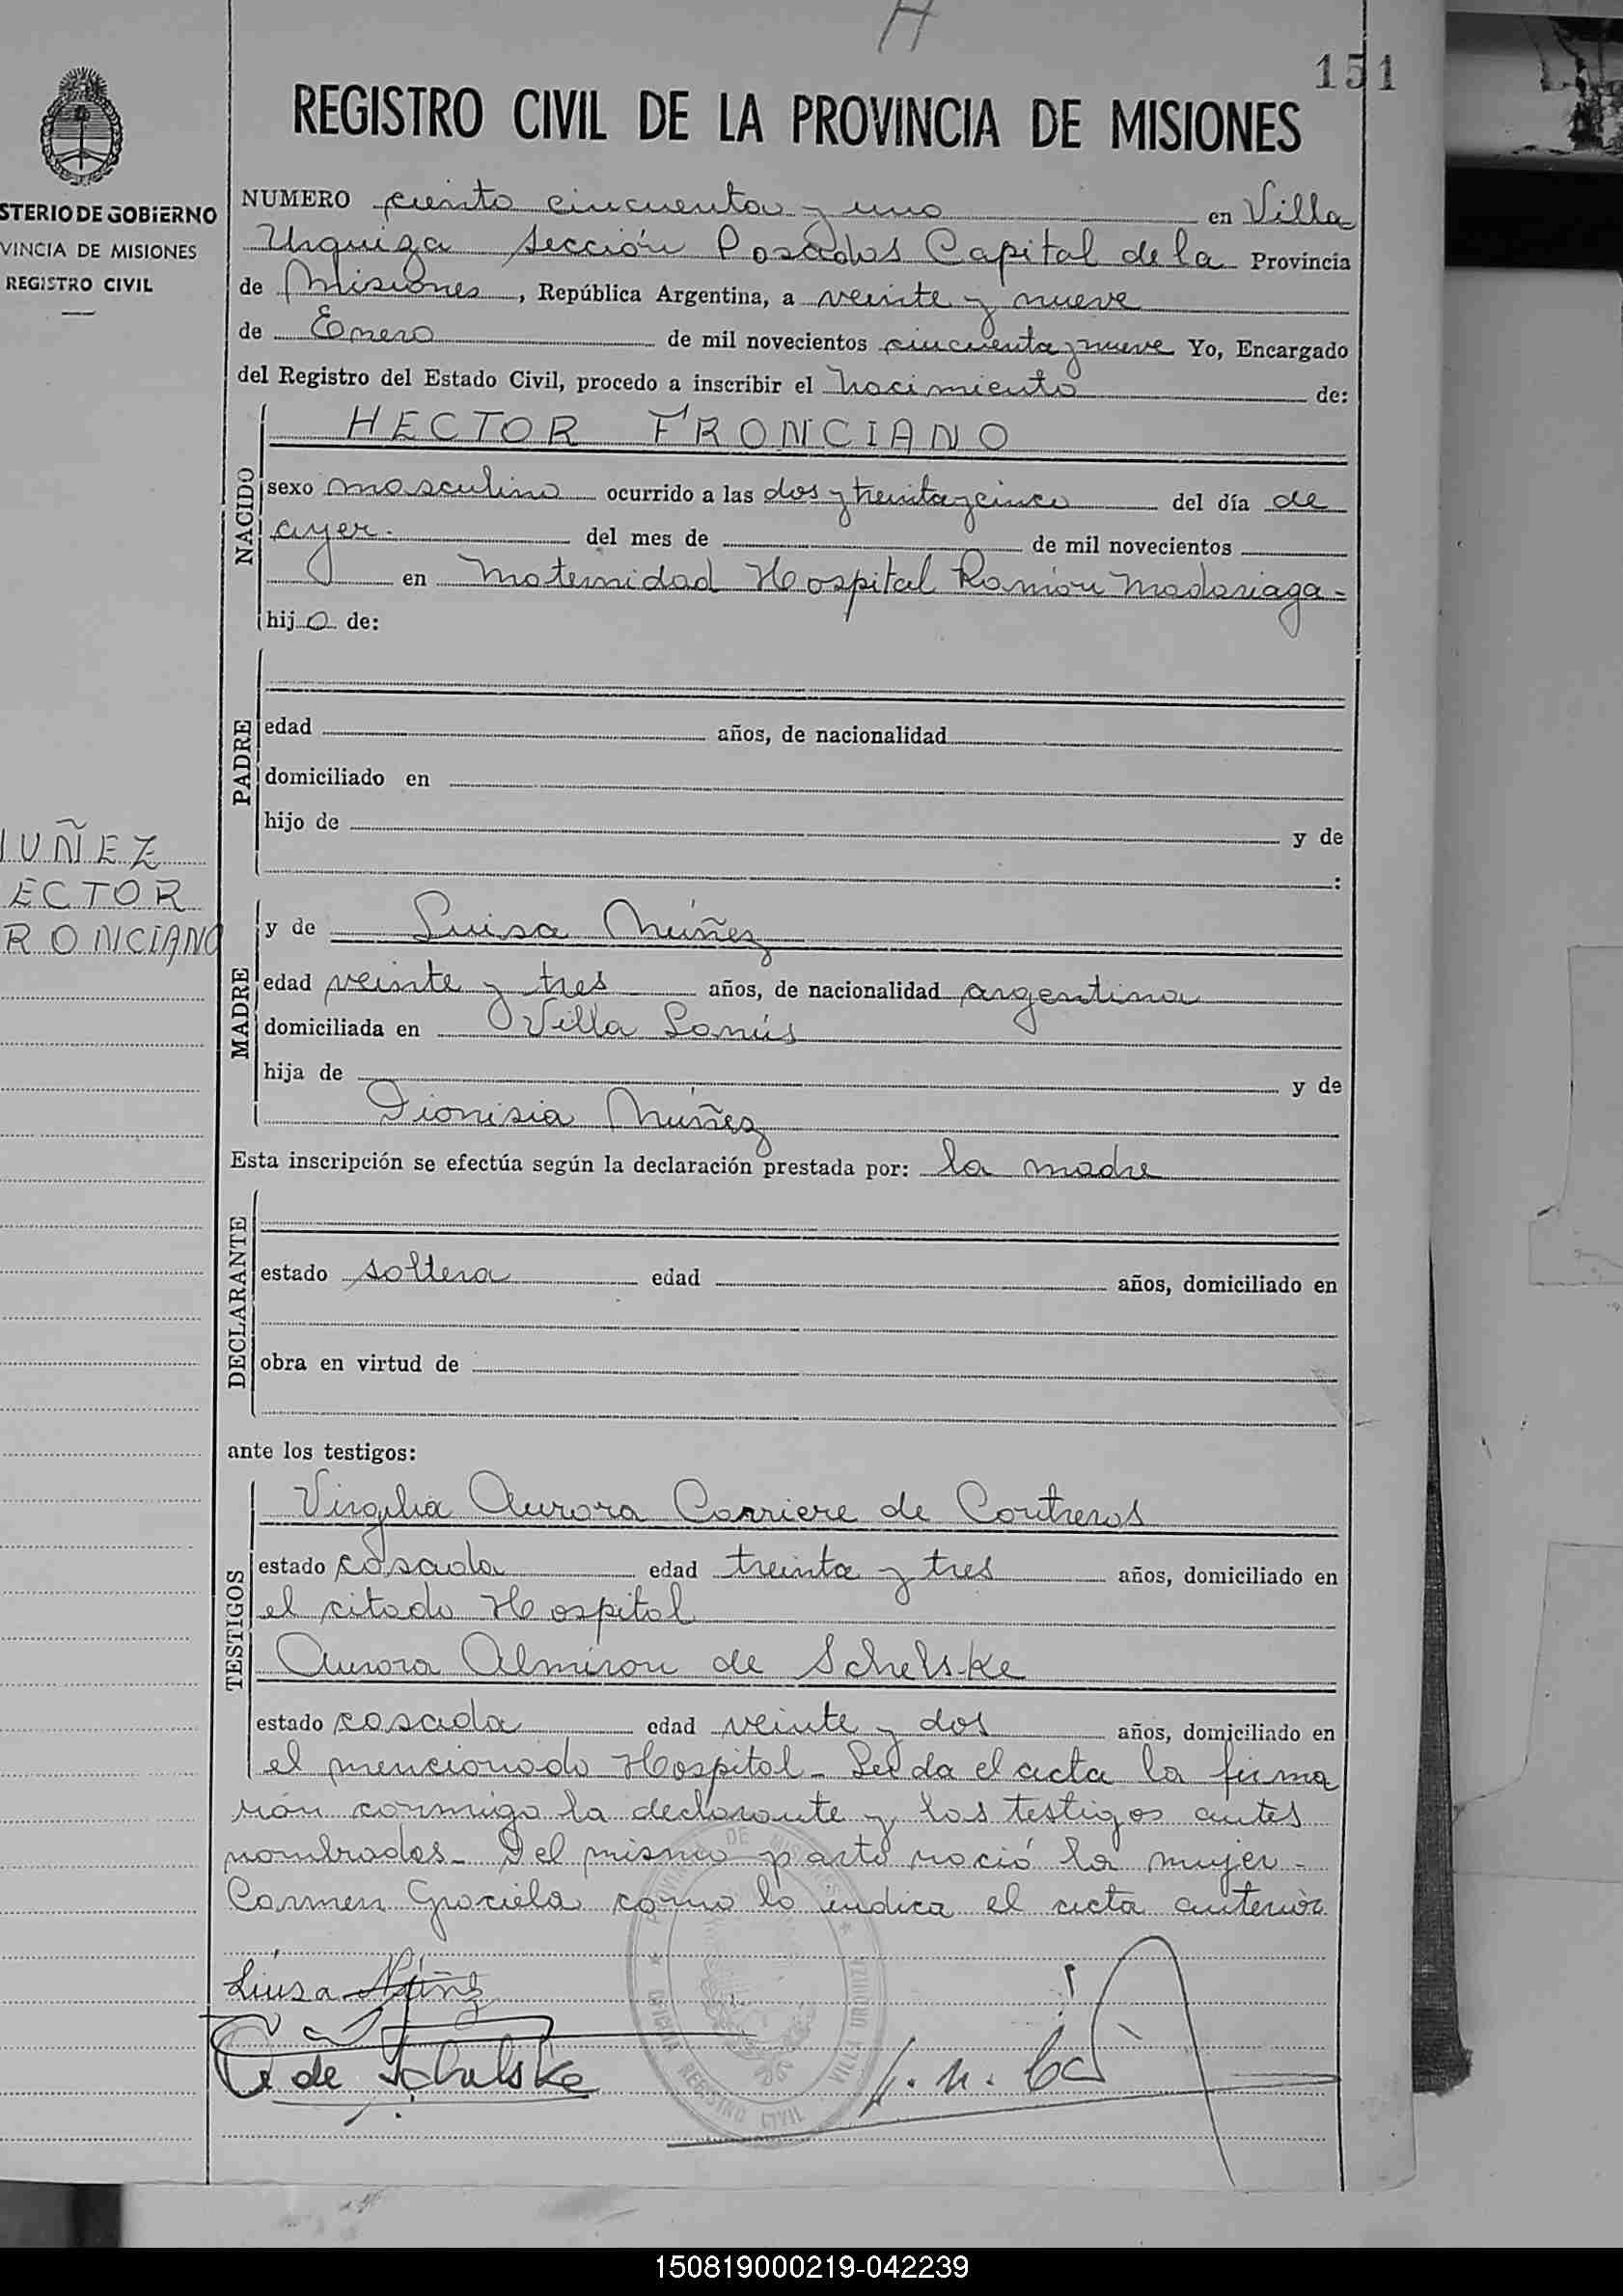 H
151
REGISTRO CIVIL DE LA PROVINCIA DE MISIONES
STERIO DE GOBIERNO
VINCIA DE MISIONES
REGISTRO CIVIL
NUMERO ciento cincuenta y uno en Villa
Urquiza sección Posadas Capital de la Provincia
de Misiones, República Argentina, a veinte y nueve
de Enero de mil novecientos cincuenta y nueve Yo, Encargado
del Registro del Estado Civil, procedo a inscribir el nacimiento de:
HECTOR FRONCIANO
NACIDO
sexo masculino ocurrido a las dos y treinta y cinco del día de
ayer.- del mes de de mil novecientos
en Maternidad Hospital Ramón Madariaga-
hijo de:
PADRE
edad años, de nacionalidad
domiciliado en
hijo de y de
:
UÑEZ
ECTOR
RONCIANO
MADRE
y de Luisa Núñez
edad veinte y tres años, de nacionalidad argentina
domiciliada en Villa Lanús
hija de y de
Dionisia Núñez
Esta inscripción se efectúa según la declaración prestada por: la madre
DECLARANTE
estado soltera edad años, domiciliado en
obra en virtud de
ante los testigos:
TESTIGOS
Virgilia Aurora Carriere de Contreras
estado casada edad treinta y tres años, domiciliado en
el citado Hospital
Aurora Almiron de Schelske
estado casada edad veinte y dos años, domiciliado en
el mencionado Hospital- Leida el acta la firma
rón conmigo la declarante y los testigos antes
nombrados- Del mismo parto nació la mujer-
Carmen Graciela como lo indica el acta anterior
Luisa Núñez
de Schelske
PROVINCIA DE MISIONES
OFICINA REGISTRO CIVIL VILLA URQUIZA
150819000219-042239